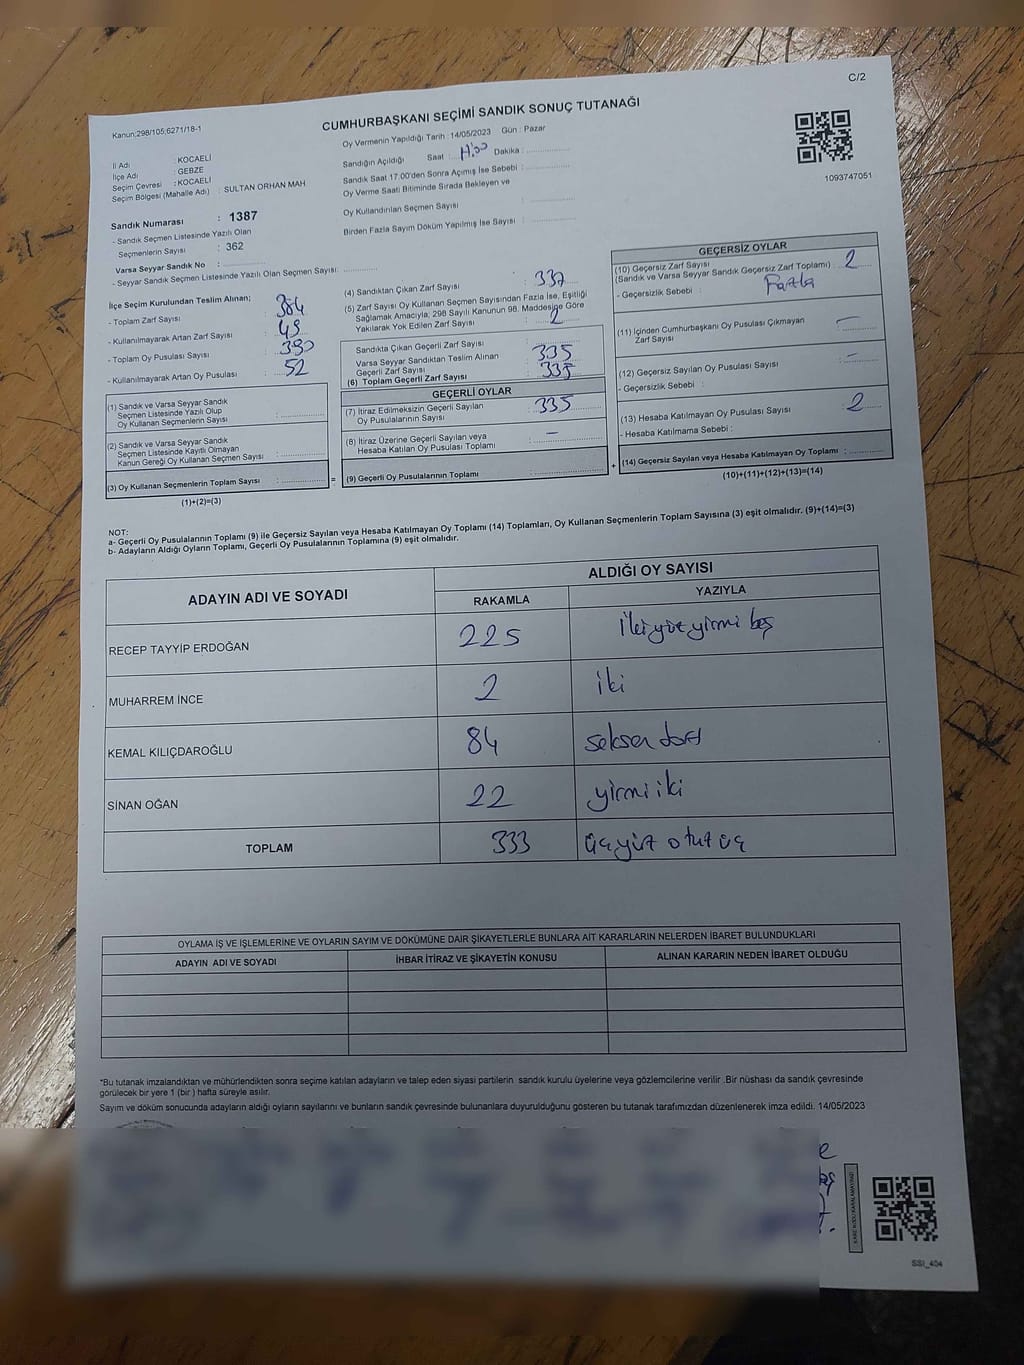 C/2
Kanun;298/105;6271/18-1
CUMHURBAŞKANI SEÇİMİ SANDIK SONUÇ TUTANAĞI
1093747051
İl Adı : KOCAELİ
İlçe Adı : GEBZE
Seçim Çevresi : KOCAELİ
Seçim Bölgesi (Mahalle Adı) : SULTAN ORHAN MAH
Sandık Numarası : 1387
- Sandık Seçmen Listesinde Yazılı Olan
Seçmenlerin Sayısı : 362
Varsa Seyyar Sandık No :
- Seyyar Sandık Seçmen Listesinde Yazılı Olan Seçmen Sayısı:
Oy Vermenin Yapıldığı Tarih : 14/05/2023 Gün : Pazar
Sandığın Açıldığı Saat : Dakika :
Sandık Saat 17.00'den Sonra Açımış İse Sebebi :
Oy Verme Saati Bitiminde Sırada Bekleyen ve
Oy Kullandırılan Seçmen Sayısı :
Birden Fazla Sayım Döküm Yapılmış İse Sayısı :
İlçe Seçim Kurulundan Teslim Alınan;
- Toplam Zarf Sayısı : 384
- Kullanılmayarak Artan Zarf Sayısı : 49
- Toplam Oy Pusulası Sayısı : 390
- Kullanılmayarak Artan Oy Pusulası : 52
(1) Sandık ve Varsa Seyyar Sandık
Seçmen Listesinde Yazılı Olup
Oy Kullanan Seçmenlerin Sayısı :
(2) Sandık ve Varsa Seyyar Sandık
Seçmen Listesinde Kayıtlı Olmayan
Kanun Gereği Oy Kullanan Seçmen Sayısı :
(3) Oy Kullanan Seçmenlerin Toplam Sayısı : =
(1)+(2)=(3)
(4) Sandıktan Çıkan Zarf Sayısı : 337
(5) Zarf Sayısı Oy Kullanan Seçmen Sayısından Fazla İse, Eşitliği
Sağlamak Amacıyla; 298 Sayılı Kanunun 98. Maddesine Göre
Yakılarak Yok Edilen Zarf Sayısı : 2
Sandıkta Çıkan Geçerli Zarf Sayısı : 335
Varsa Seyyar Sandıktan Teslim Alınan
Geçerli Zarf Sayısı :
(6) Toplam Geçerli Zarf Sayısı : 335
GEÇERLİ OYLAR
(7) İtiraz Edilmeksizin Geçerli Sayılan
Oy Pusulalarının Sayısı : 335
(8) İtiraz Üzerine Geçerli Sayılan veya
Hesaba Katılan Oy Pusulası Toplamı : –
(9) Geçerli Oy Pusulalarının Toplamı : +
GEÇERSİZ OYLAR
(10) Geçersiz Zarf Sayısı
(Sandık ve Varsa Seyyar Sandık Geçersiz Zarf Toplamı) : 2
- Geçersizlik Sebebi : Fazla
(11) İçinden Cumhurbaşkanı Oy Pusulası Çıkmayan
Zarf Sayısı : –
(12) Geçersiz Sayılan Oy Pusulası Sayısı : –
- Geçersizlik Sebebi :
(13) Hesaba Katılmayan Oy Pusulası Sayısı : 2
- Hesaba Katılmama Sebebi :
(14) Geçersiz Sayılan veya Hesaba Katılmayan Oy Toplamı :
(10)+(11)+(12)+(13)=(14)
NOT:
a- Geçerli Oy Pusulalarının Toplamı (9) ile Geçersiz Sayılan veya Hesaba Katılmayan Oy Toplamı (14) Toplamları, Oy Kullanan Seçmenlerin Toplam Sayısına (3) eşit olmalıdır. (9)+(14)=(3)
b- Adayların Aldığı Oyların Toplamı, Geçerli Oy Pusulalarının Toplamına (9) eşit olmalıdır.
ADAYIN ADI VE SOYADI ALDIĞI OY SAYISI
RAKAMLA YAZIYLA
RECEP TAYYİP ERDOĞAN 225 ikiyüzyirmi beş
MUHARREM İNCE 2 iki
KEMAL KILIÇDAROĞLU 84 seksen dört
SİNAN OĞAN 22 yirmi iki
TOPLAM 333 üçyüz otuz üç
OYLAMA İŞ VE İŞLEMLERİNE VE OYLARIN SAYIM VE DÖKÜMÜNE DAİR ŞİKAYETLERLE BUNLARA AİT KARARLARIN NELERDEN İBARET BULUNDUKLARI
ADAYIN ADI VE SOYADI İHBAR İTİRAZ VE ŞİKAYETİN KONUSU ALINAN KARARIN NEDEN İBARET OLDUĞU
*Bu tutanak imzalandıktan ve mühürlendikten sonra seçime katılan adayların ve talep eden siyasi partilerin sandık kurulu üyelerine veya gözlemcilerine verilir .Bir nüshası da sandık çevresinde
görülecek bir yere 1 (bir ) hafta süreyle asılır.
Sayım ve döküm sonucunda adayların aldığı oyların sayılarını ve bunların sandık çevresinde bulunanlara duyurulduğunu gösteren bu tutanak tarafımızdan düzenlenerek imza edildi. 14/05/2023
KARE KODU KARALAMAYINIZ!
SSI_404